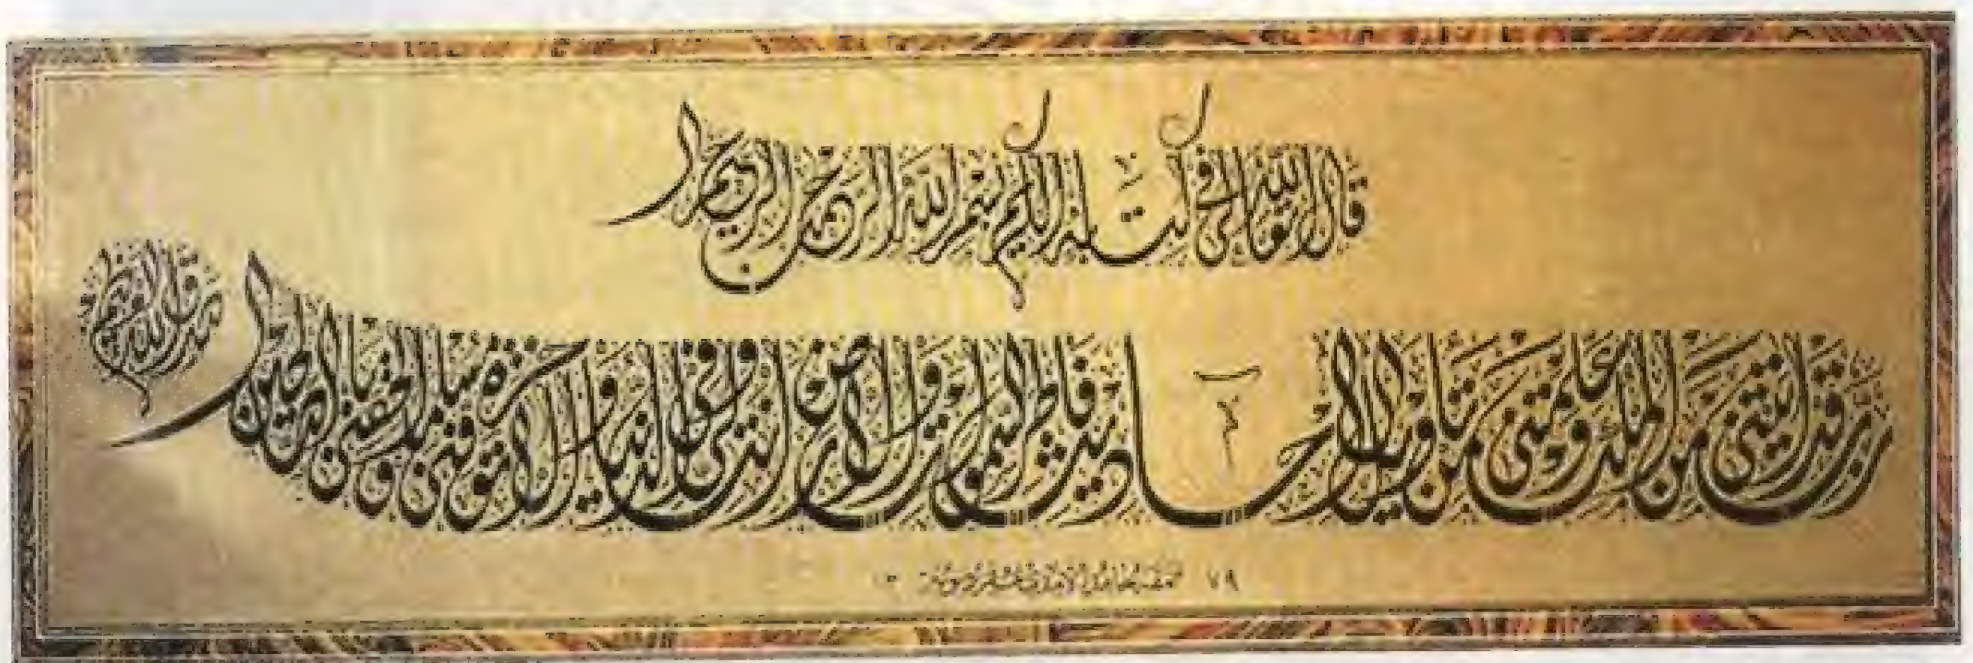 قال الله تعالى في كتابه الكريم بسم الله الرحمن الرحيم
رب قد آتيتني من الملك وعلمتني من تأويل الأحاديث فاطر السموات والأرض أنت وليي في الدنيا والآخرة توفني مسلما وألحقني بالصالحين
صدق الله العظيم
٧٩